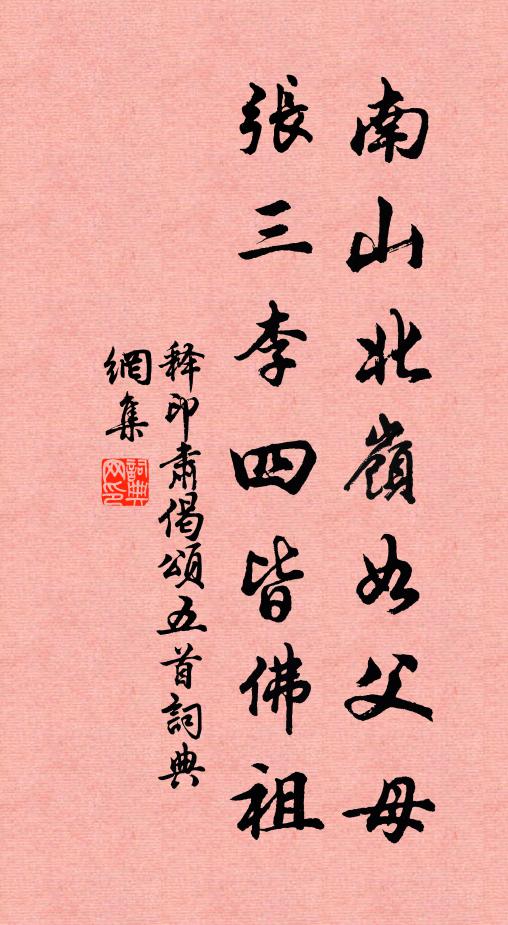 南山北嶺如父母
張三李四皆佛祖
释印肅偈頌五首詞典
網集
詞典
网印